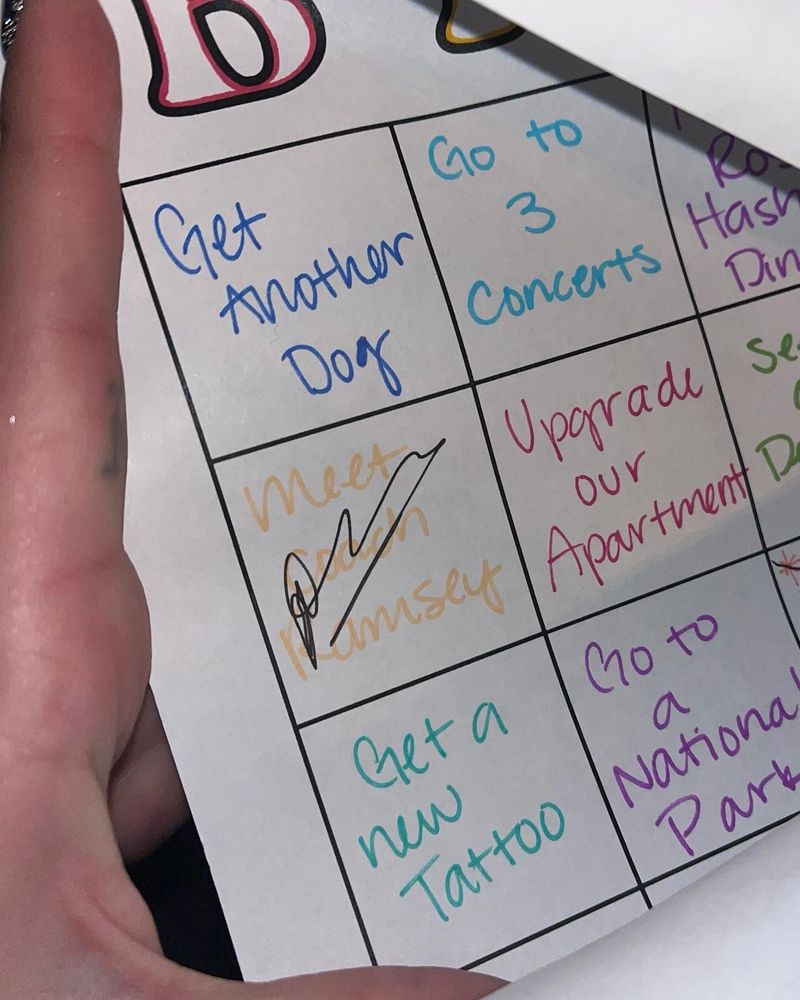 B
Get
Another
Dog
Go to
3
Concerts
Meet
Coach
Ramsey
Upgrade
our
Apartment
Get a
new
Tattoo
Go to
a
National
Park